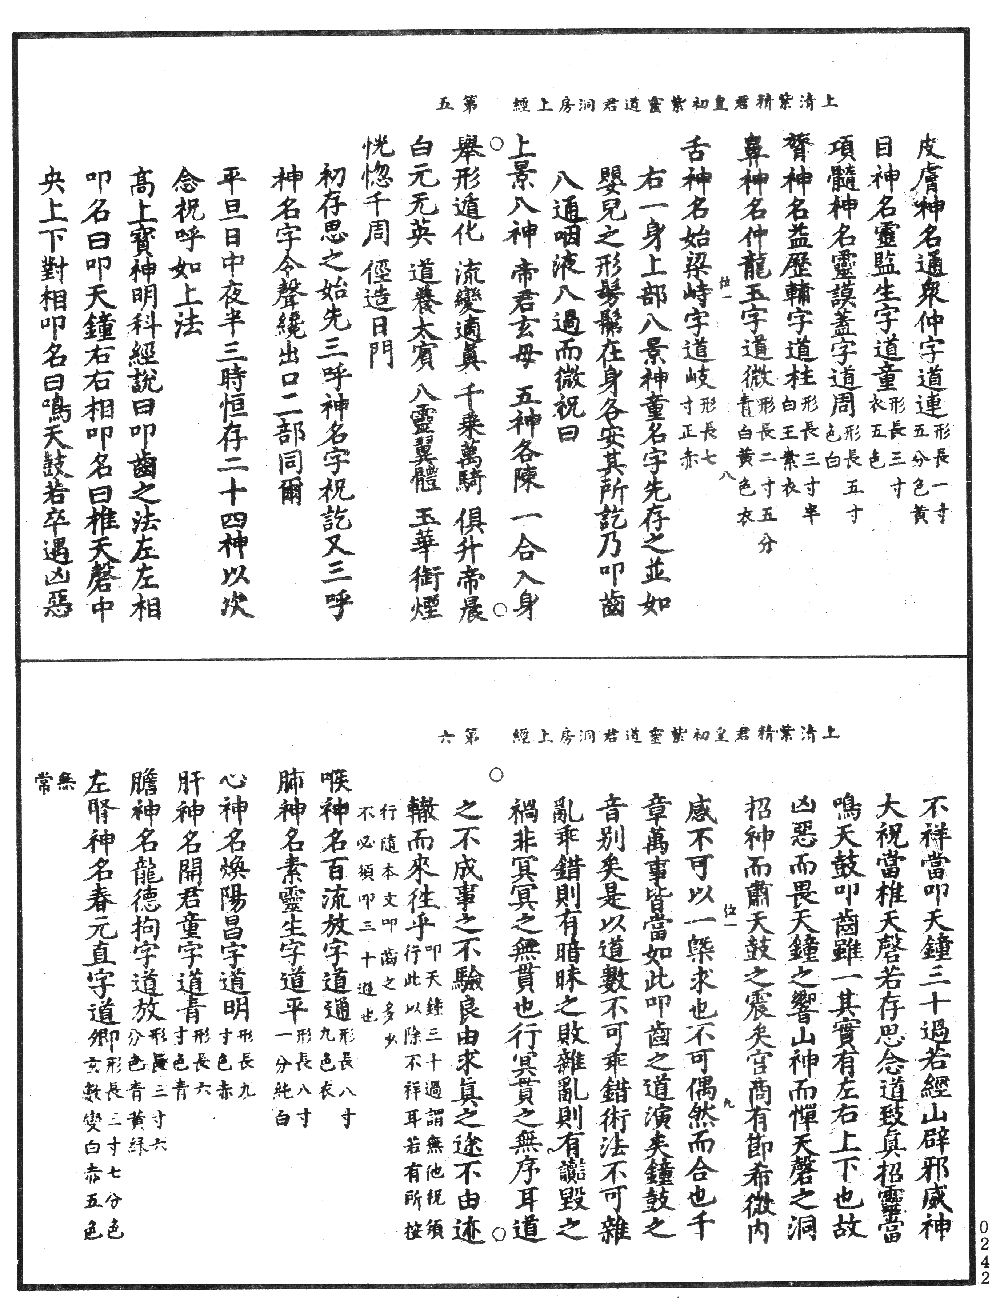 上清紫精君皇初紫靈道君洞房上經　第五
皮膚神名通衆仲字道連形長一寸五分色黃
目神名靈監生字道童形長三寸衣五色
項髓神名靈謨蓋字道周形長五寸色白
膂神名益歷輔字道柱形長三寸半白玉素衣
鼻神名仲龍玉字道微形長二寸五分青白黃色衣
舌神名始梁峙字道岐形長七寸正赤
右一身上部八景神童名字先存之並如
嬰兒之形髣髴在身各安其所訖乃叩齒
八通咽液八過而微祝曰
上景八神 帝君玄母 五神各陳 一合入身
舉形遁化 流變適真 千乘萬騎 俱升帝晨
白元无英 道養太賓 八靈翼體 玉華衛煙
恍惚千周 徑造日門
初存思之始先三呼神名字祝訖又三呼
神名字令聲纔出口二部同爾
平旦日中夜半三時恒存二十四神以次
念祝呼如上法
高上寶神明科經說曰叩齒之法左左相
叩名曰叩天鐘右右相叩名曰椎天磬中
央上下對相叩名曰鳴天鼓若卒遇凶惡
上清紫精君皇初紫靈道君洞房上經　第六
不祥當叩天鐘三十過若經山辟邪威神
大祝當椎天磬若存思念道致真招靈當
鳴天鼓叩齒雖一其實有左右上下也故
凶惡而畏天鐘之響山神而憚天磬之洞
招神而肅天鼓之震矣宮商有節希微內
感不可以一槩求也不可偶然而合也千
章萬事皆當如此叩齒之道演矣鐘鼓之
音別矣是以道數不可乖錯術法不可雜
亂乖錯則有暗昧之敗雜亂則有讟毀之
禍非冥冥之無貫也行冥貫之無序耳道
之不成事之不驗良由求真之途不由迹
轍而來往乎叩天鐘三十過謂無他祝須行此以除不祥耳若有所按
行隨本文叩齒之多少不必須叩三十過也
喉神名百流放字道通形長八寸九色衣
肺神名素靈生字道平形長八寸一分純白
心神名煥陽昌字道明形長九寸色赤
肝神名開君童字道青形長六寸色青
膽神名龍德拘字道放形長三寸六分色青黃綠
左腎神名春元直字道卿即形長三寸七分色玄數變白赤五色
無常
位一　八
位一　九
0242